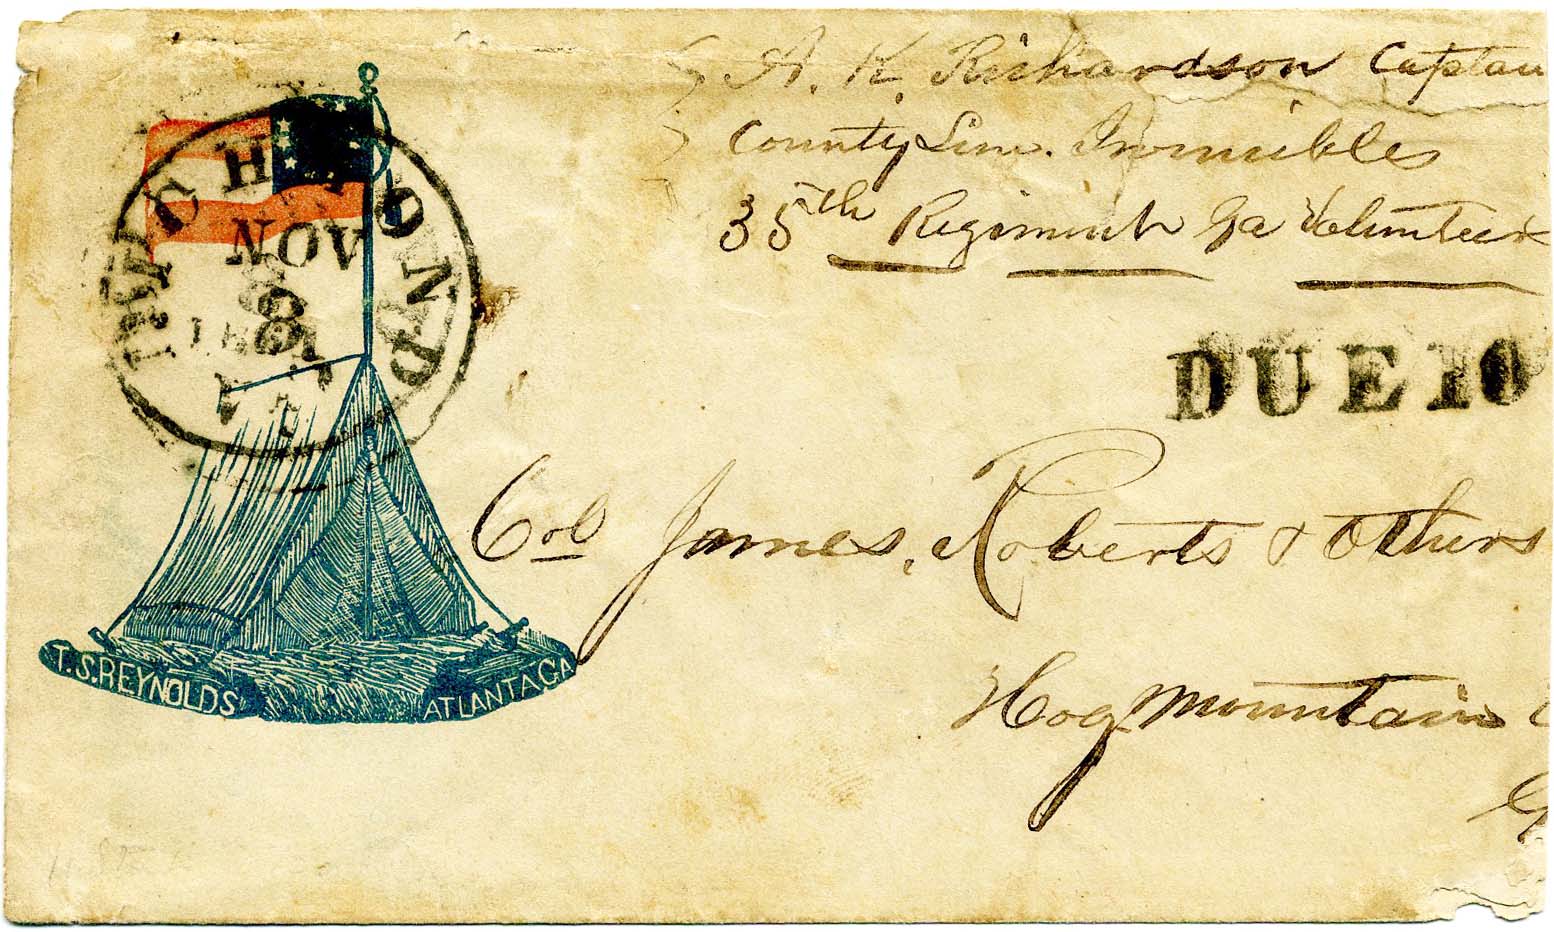 A. K. Richardson Captain
County Line. Invincibles
35th Regiment Ga Volunteers
RICHMOND
NOV
8
1861
DUE 10
Col James, Roberts & Others
Hog Mountain
G
T.S. REYNOLDS ATLANTA GA